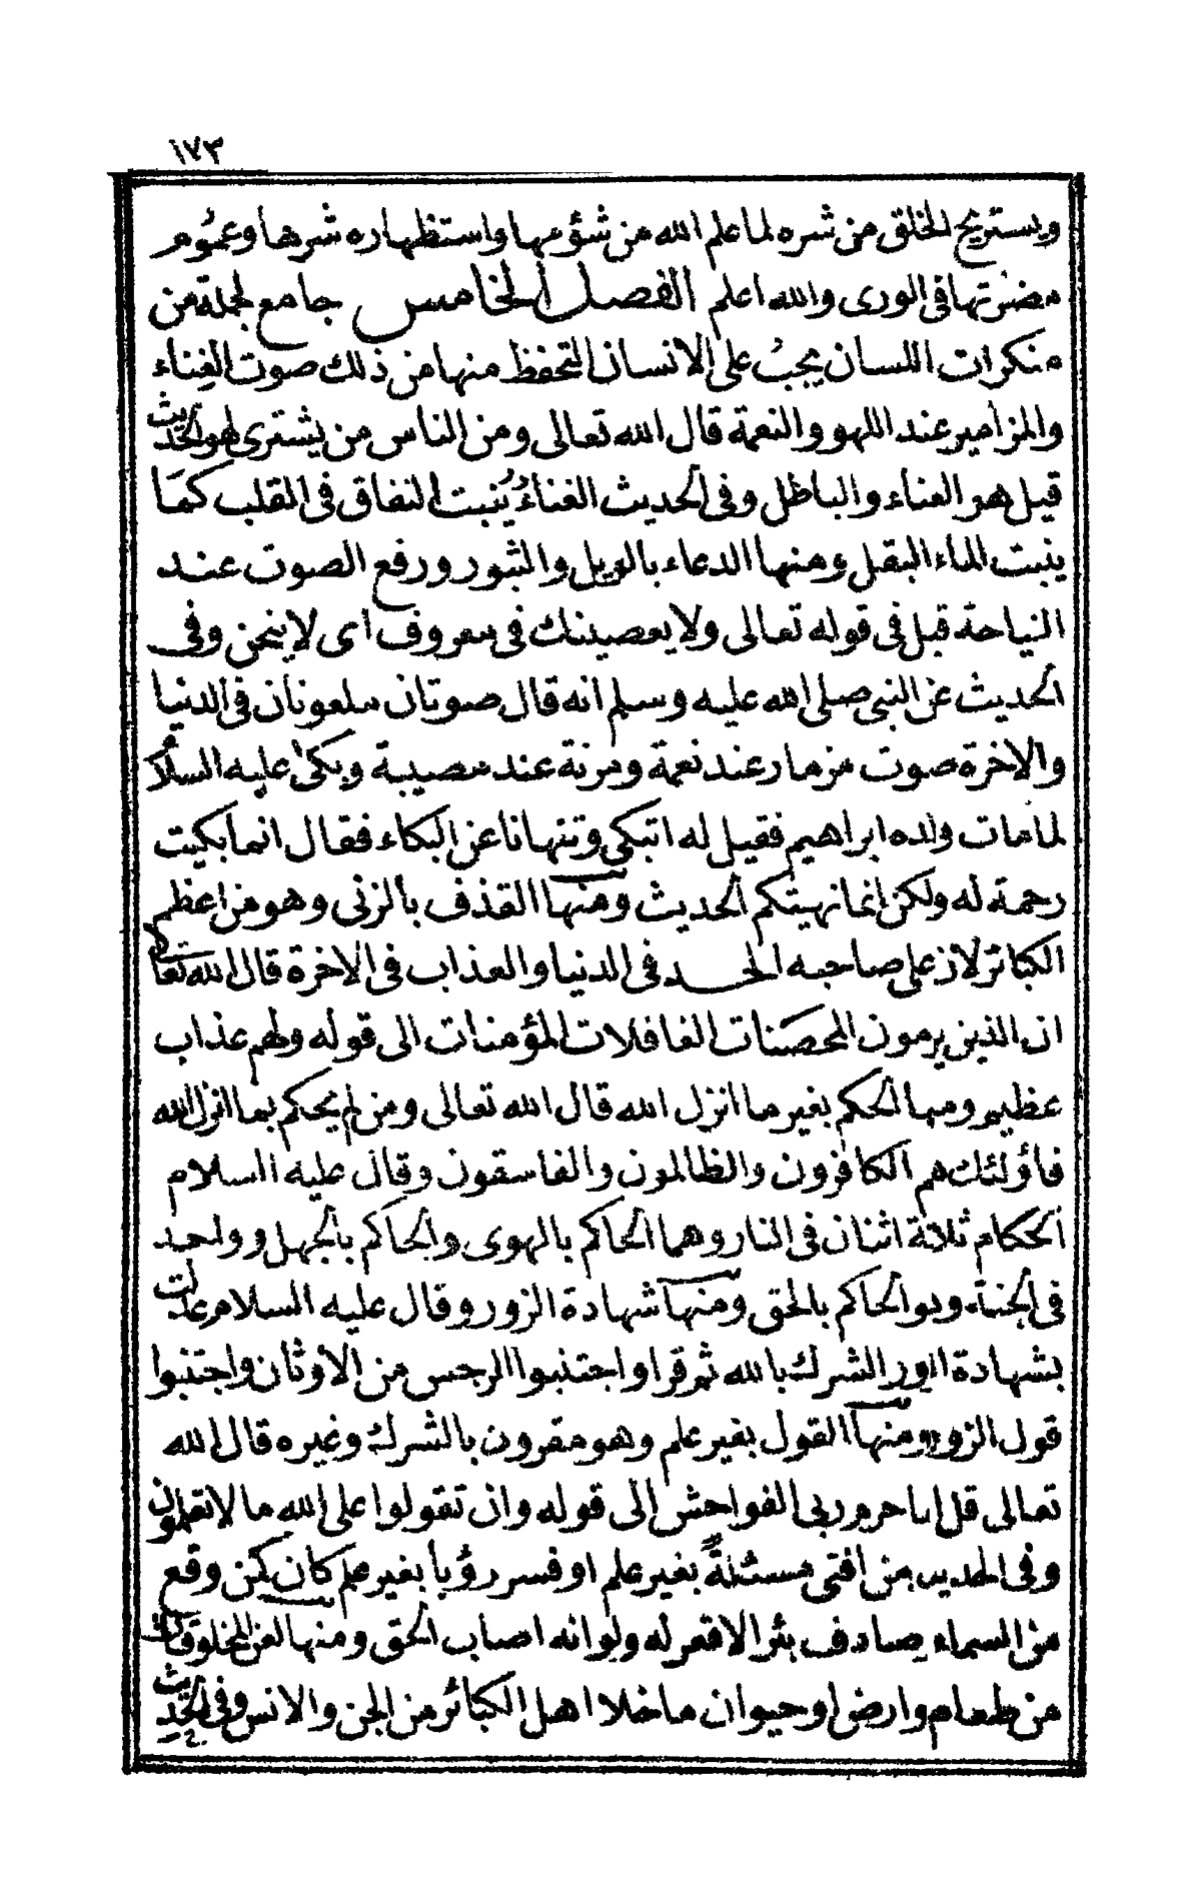 ١٧٣
ويستريح الخلق من شره لما علم الله من شؤمها واستظهاره شرها وعموم
مضرتها فى الورى والله اعلم الفصل الخامس جامع لجملة من
منكرات اللسان يجب على الانسان التحفظ منها من ذلك صوت الغناء
والمزامير عند اللهو والنعمة قال الله تعالى ومن الناس من يشترى لهو الحديث
قيل هو الغناء والباطل وفى الحديث الغناءُ يُنبت النفاق فى القلب كما
ينبت الماء البقل ومنها الدعاء بالويل والثبور ورفع الصوت عند
النياحة قيل فى قوله تعالى ولا يعصينك فى معروف اى لا ينحن وفى
الحديث عن النبى صلى الله عليه وسلم انه قال صوتان ملعونان فى الدنيا
والاخرة صوت مزمار عند نعمة ومرنة عند مصيبة وبكى عليه السلام
لما مات ولده ابراهيم فقيل له اتبكى وتنهانا عن البكاء فقال انما بكيت
رحمة له ولكن انما نهيتكم الحديث ومنها القذف بالزنى وهو من اعظم
الكبائر لان على صاحبه الحد فى الدنيا والعذاب فى الاخرة قال الله تعالى
ان الذين يرمون المحصنات الغافلات المؤمنات الى قوله ولهم عذاب
عظيم ومنها الحكم بغير ما انزل الله قال الله تعالى ومن لم يحكم بما انزل الله
فاؤلئك هم الكافرون والظالمون والفاسقون وقال عليه السلام
الحكام ثلاثة اثنان فى النار وهما الحاكم بالهوى والحاكم بالجهل وواحد
فى الجنة وهو الحاكم بالحق ومنها شهادة الزور وقال عليه السلام عدلت
بشهادة الزور الشرك بالله ثم قرا واجتنبوا الرجس من الاوثان واجتنبوا
قول الزور ومنها القول بغير علم وهو مقرون بالشرك وغيره قال الله
تعالى قل انما حرم ربى الفواحش الى قوله وان تقولوا على الله ما لا تعلمون
وفى الحديث من افتى مسئلةً بغير علم او فسر رؤيا بغير علم كان كمن وقع
من السماء يصادف بئرا لا قعر له ولو انه اصاب الحق ومنها لعن المخلوقات
من طعام وارض او حيوان ما خلا اهل الكبائر من الجن والانس وفى الحديث